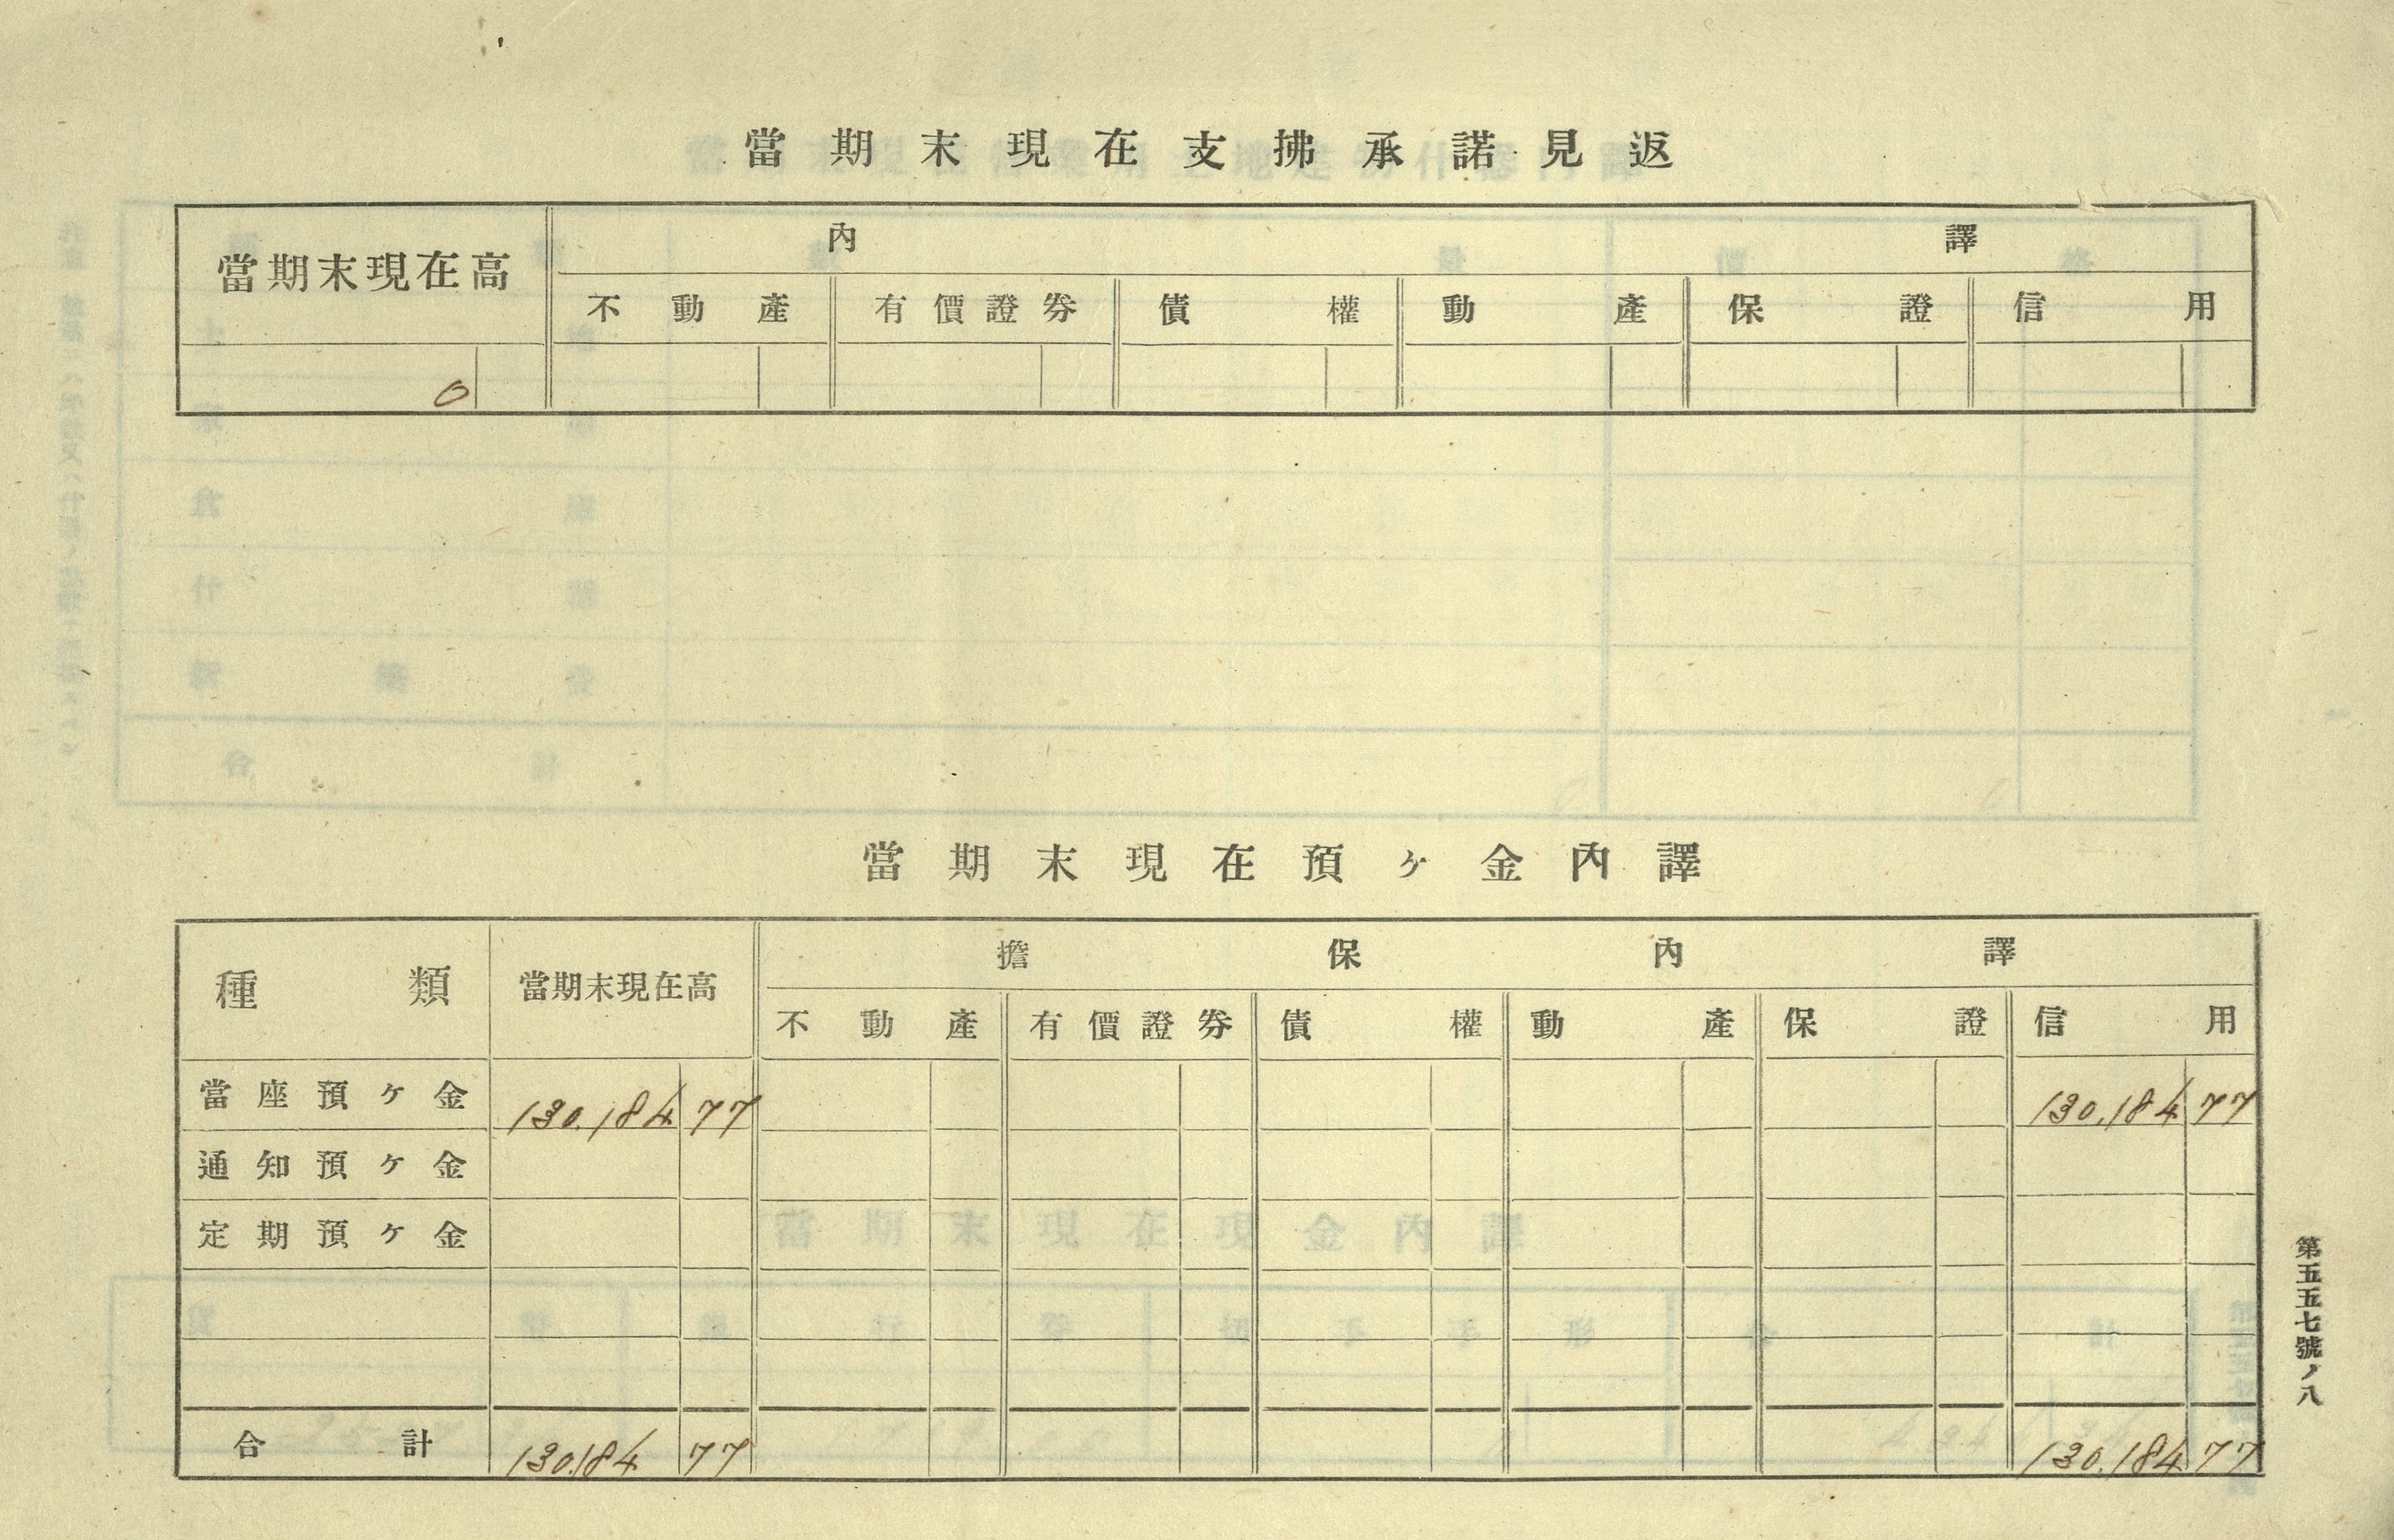 當期末現在支拂承諾見返
當期末現在高 內譯
不動產 有價證券 債權 動產 保證 信用
0
當期末現在預ヶ金內譯
種類 當期末現在高 擔保內譯
不動產 有價證券 債權 動產 保證 信用
當座預ケ金 130.184 77 130.184 77
通知預ケ金
定期預ケ金
合計 130.184 77 130.184 77
第五五七號ノ八